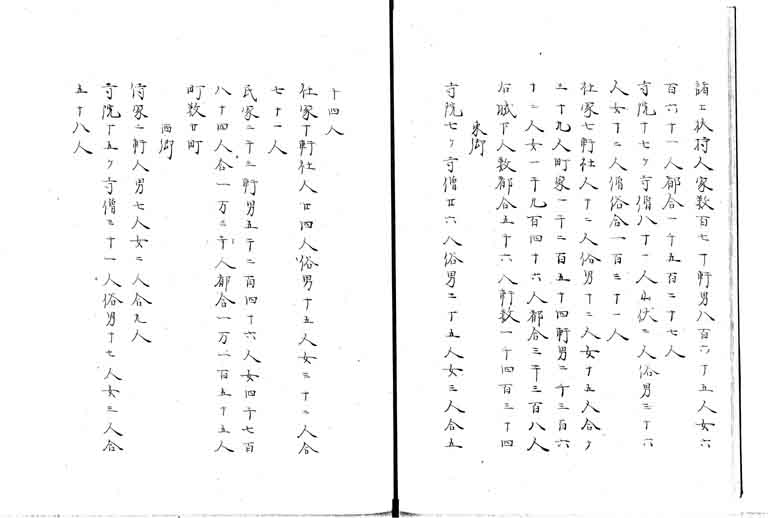 諸士扶持人家数百七十軒男八百六十五人女六
百六十一人都合一千五百二十七人
寺院十七ヶ寺僧八十一人山伏二人俗男三十六
人女十二人僧俗合一百三十一人
社家七軒社人十二人俗男十二人女十五人合
三十九人町家一千二百五十四軒男二千三百六
十二人女一千九百四十六人都合三千三百八人
右城下人数都合五千六人軒数一千四百三十四
東郷
寺院七ヶ寺僧廿六人俗男二十五人女三人合五
十四人
社家十軒社人廿四人俗男十五人女三十二人合
七十一人
民家二千三軒男五千二百四十六人女四千七百
八十四人合一万三十人都合一万一百五十五人
町数廿町
西郷
侍家二軒人男七人女二人合九人
寺院十五ヶ寺僧三十一人俗男十七人女三人合
五十八人